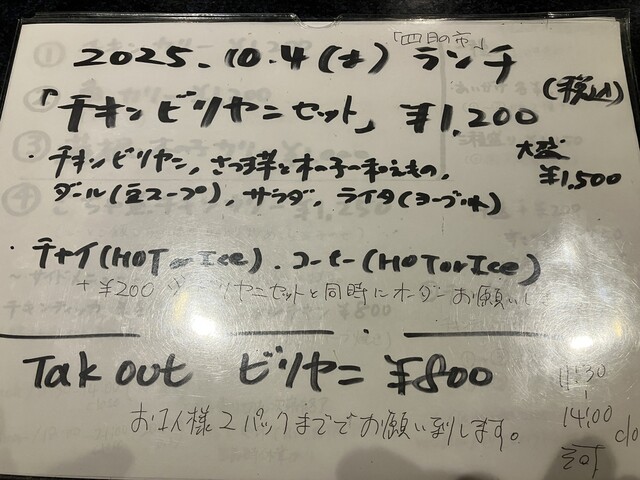 「四月の市」
2025.10.4(土) ランチ
「チキンビリヤニセット」 ¥1,200 (税込)
・チキンビリヤニ, さつま芋と木の子の和えもの,
大盛 ¥1,500
ダール(豆スープ), サラダ, ライタ(ヨーグルト)
・チャイ(HOT or Ice). コーヒー(HOT or Ice)
+¥200 ビリヤニセットと同時にオーダーお願いし
Tak out ビリヤニ ¥800
お1人様2パックまででお願い致します。
11:30
14:00